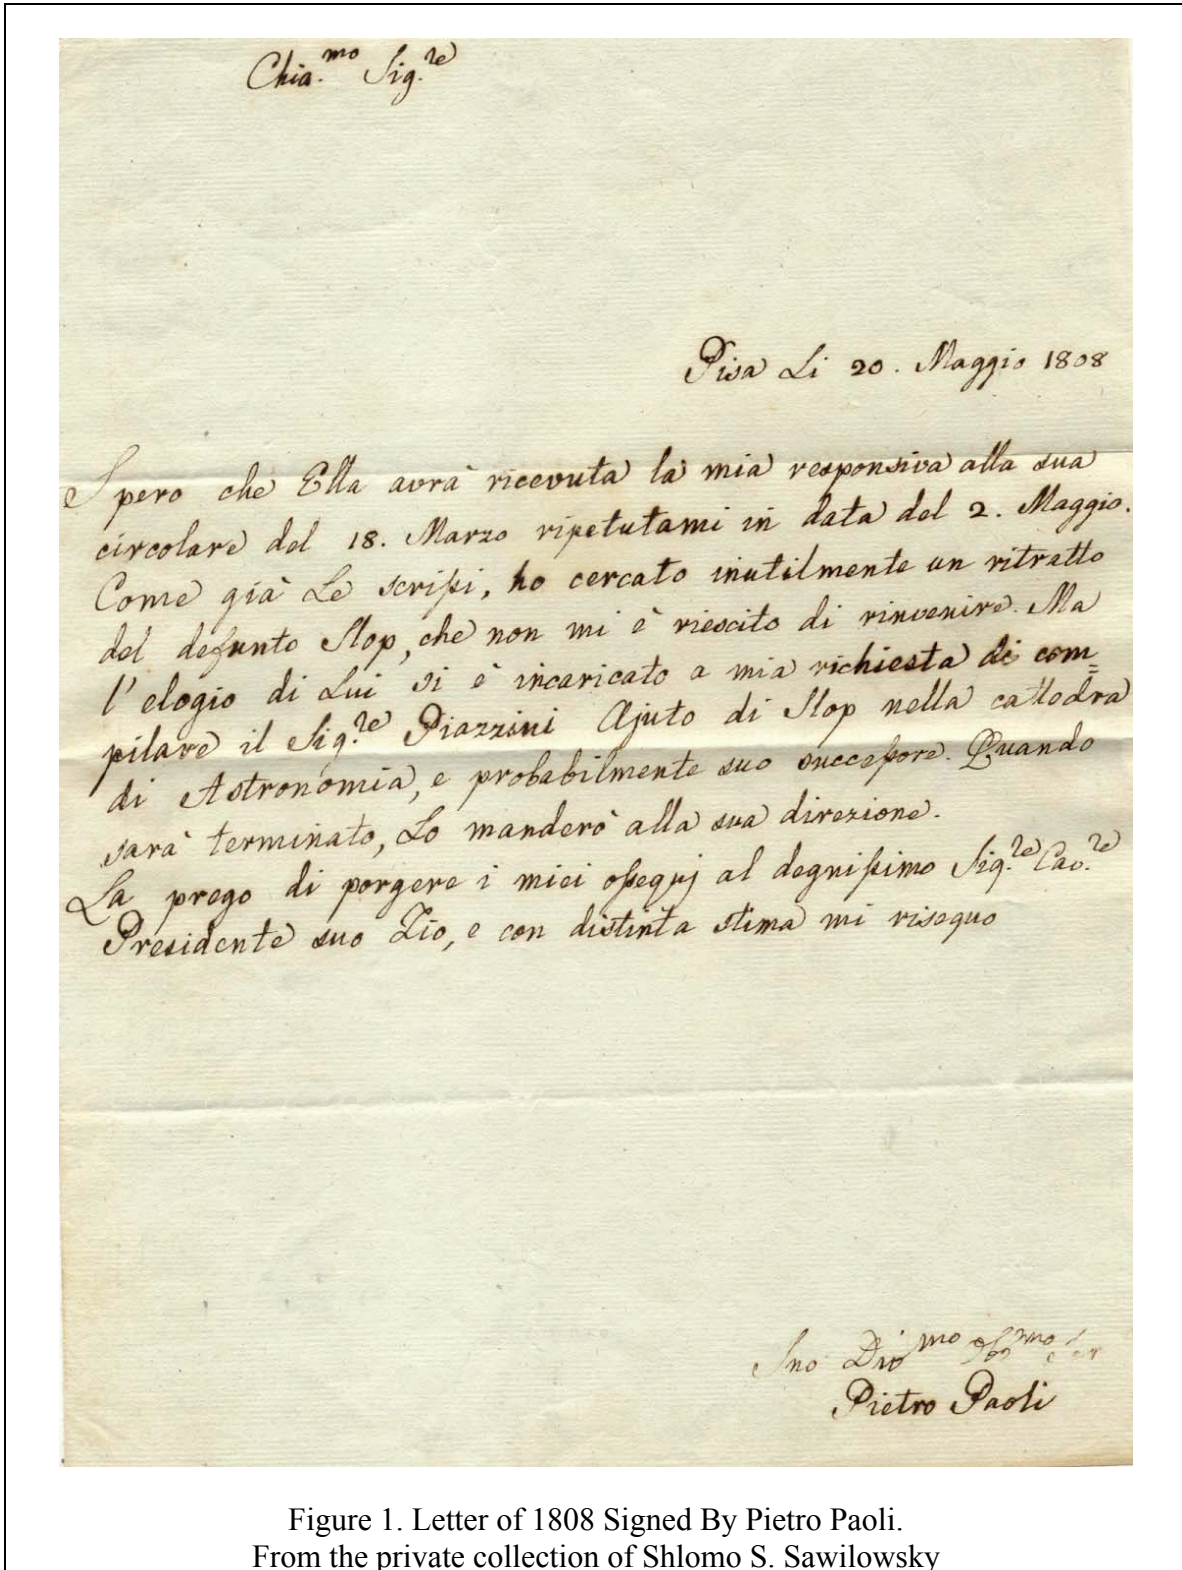 Chia.mo Sig.re
Pisa Li 20. Maggio 1808
Spero che Ella avrà ricevuta la mia responsiva alla sua
circolare del 18. Marzo ripetutami in data del 2. Maggio.
Come già Le scrissi, ho cercato inutilmente un ritratto
del defunto Slop, che non mi è riescito di rinvenire. Ma
l'elogio di Lui si è incaricato a mia richiesta di com=
pilare il Sig.re Piazzini Ajuto di Slop nella cattedra
di Astronomia, e probabilmente suo successore. Quando
sarà terminato, Lo manderò alla sua direzione.
La prego di porgere i miei ossequj al degnissimo Sig.re Cav.re
Presidente suo Zio, e con distinta stima mi risequo
Suo Div.mo
Pietro Paoli
Figure 1. Letter of 1808 Signed By Pietro Paoli.
From the private collection of Shlomo S. Sawilowsky